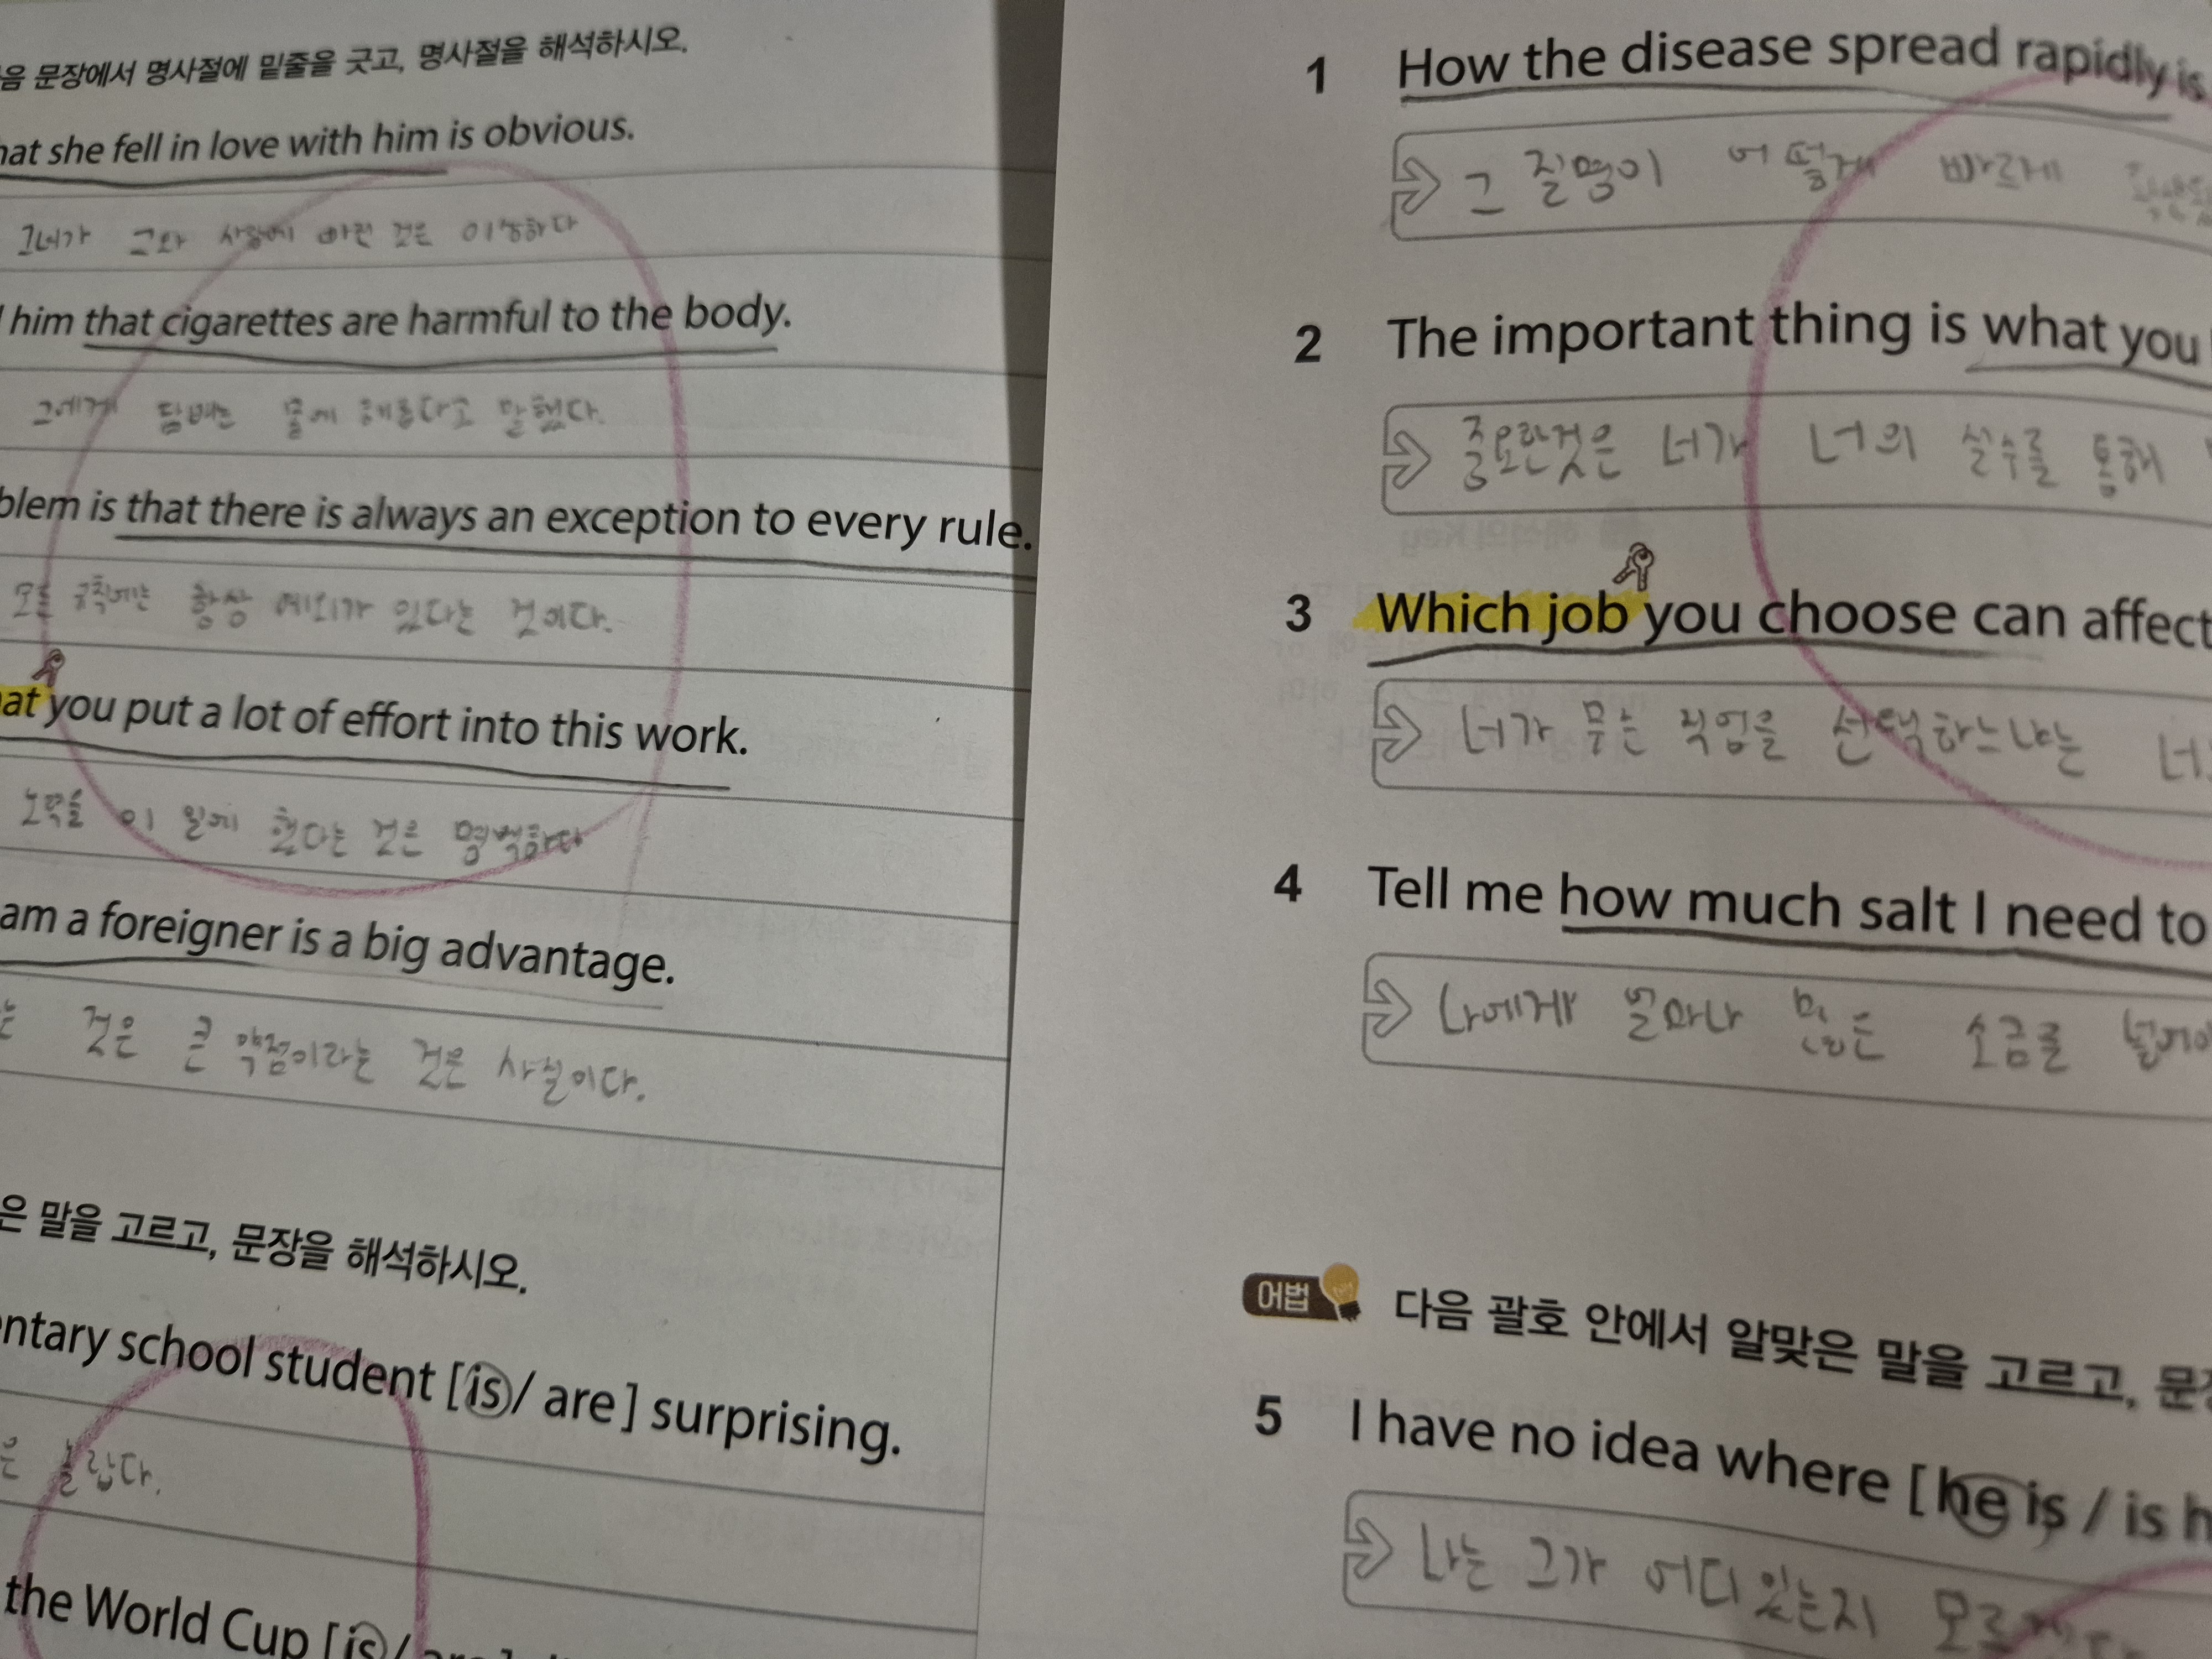 음 문장에서 명사절에 밑줄을 긋고, 명사절을 해석하시오.
hat she fell in love with him is obvious.
그녀가 그와 사랑에 빠린 것은 이상하다
him that cigarettes are harmful to the body.
그에게 담배는 몸에 해롭다고 말했다.
blem is that there is always an exception to every rule.
모든 규칙에는 항상 예외가 있다는 것이다.
at you put a lot of effort into this work.
노력을 이 일에 했다는 것은 명백하다
am a foreigner is a big advantage.
는 것은 큰 약점이라는 것은 사실이다.
은 말을 고르고, 문장을 해석하시오.
entary school student [is / are] surprising.
은 놀랍다.
the World Cup [is /
1 How the disease spread rapidly is
그 질병이 어떻게 빠르게
2 The important thing is what you
중요한것은 너가 너의 실수를 통해
3 Which job you choose can affect
너가 무슨 직업을 선택하느냐는 너
4 Tell me how much salt I need to
나에게 얼마나 많은 소금을 넣어야
어법 다음 괄호 안에서 알맞은 말을 고르고, 문장
5 I have no idea where [he is / is h
나는 그가 어디있는지